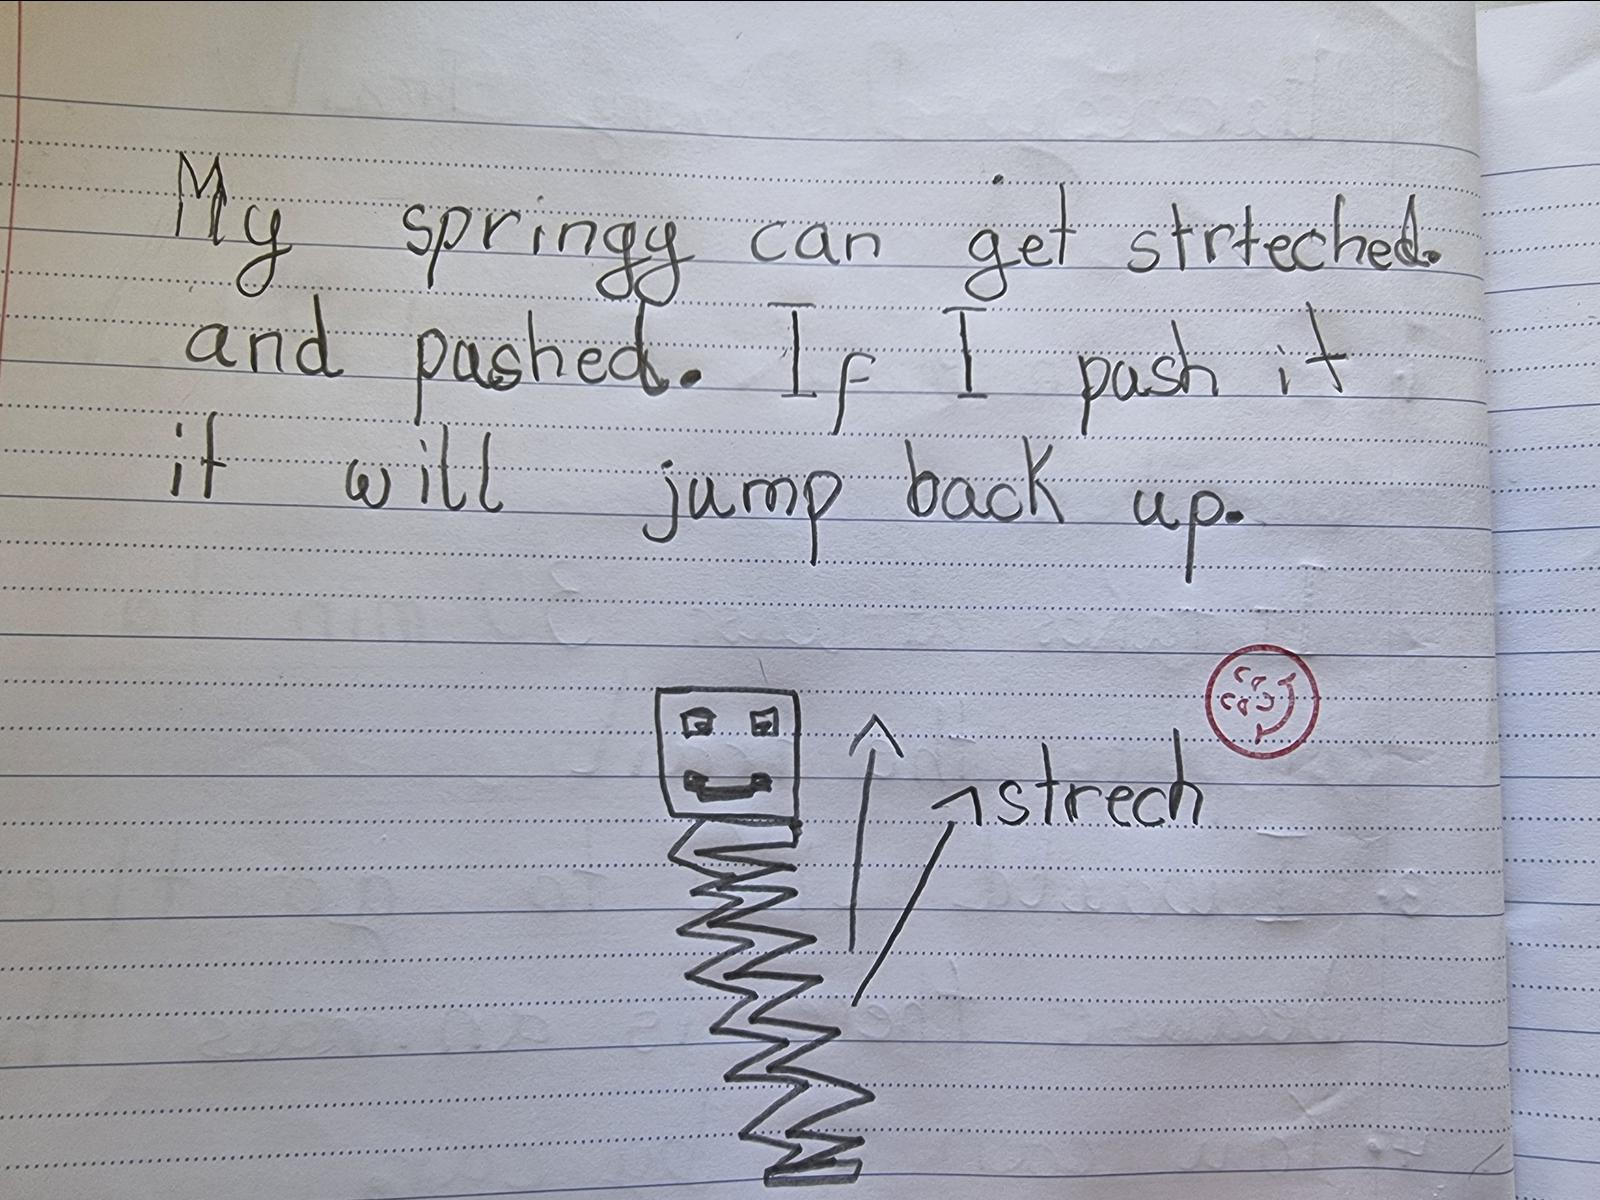 My springy can get strteched.
and pashed. If I pash it
it will jump back up.
strech